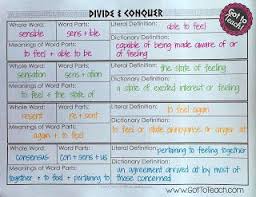 DIVIDE & CONQUER
GOT to TEACH!
Whole Word: Word Parts: Literal Definition:
sensible sens + ible able to feel
Meanings of Word Parts: Dictionary Definition:
to feel + able to be capable of being made aware of or to feeling
Whole Word: Word Parts: Literal Definition:
sensation sens + ation the state of feeling
Meanings of Word Parts: Dictionary Definition:
to feel + the state of a state of excited interest or feeling
Whole Word: Word Parts: Literal Definition:
resent re + sent to feel again
Meanings of Word Parts: Dictionary Definition:
again + to feel to feel or show annoyance or anger at
Whole Word: Word Parts: Literal Definition:
consensus con + sens + us pertaining to feeling together
Meanings of Word Parts: Dictionary Definition:
together + to feel + pertaining to an agreement arrived at by most of those concerned
www.GotToTeach.com